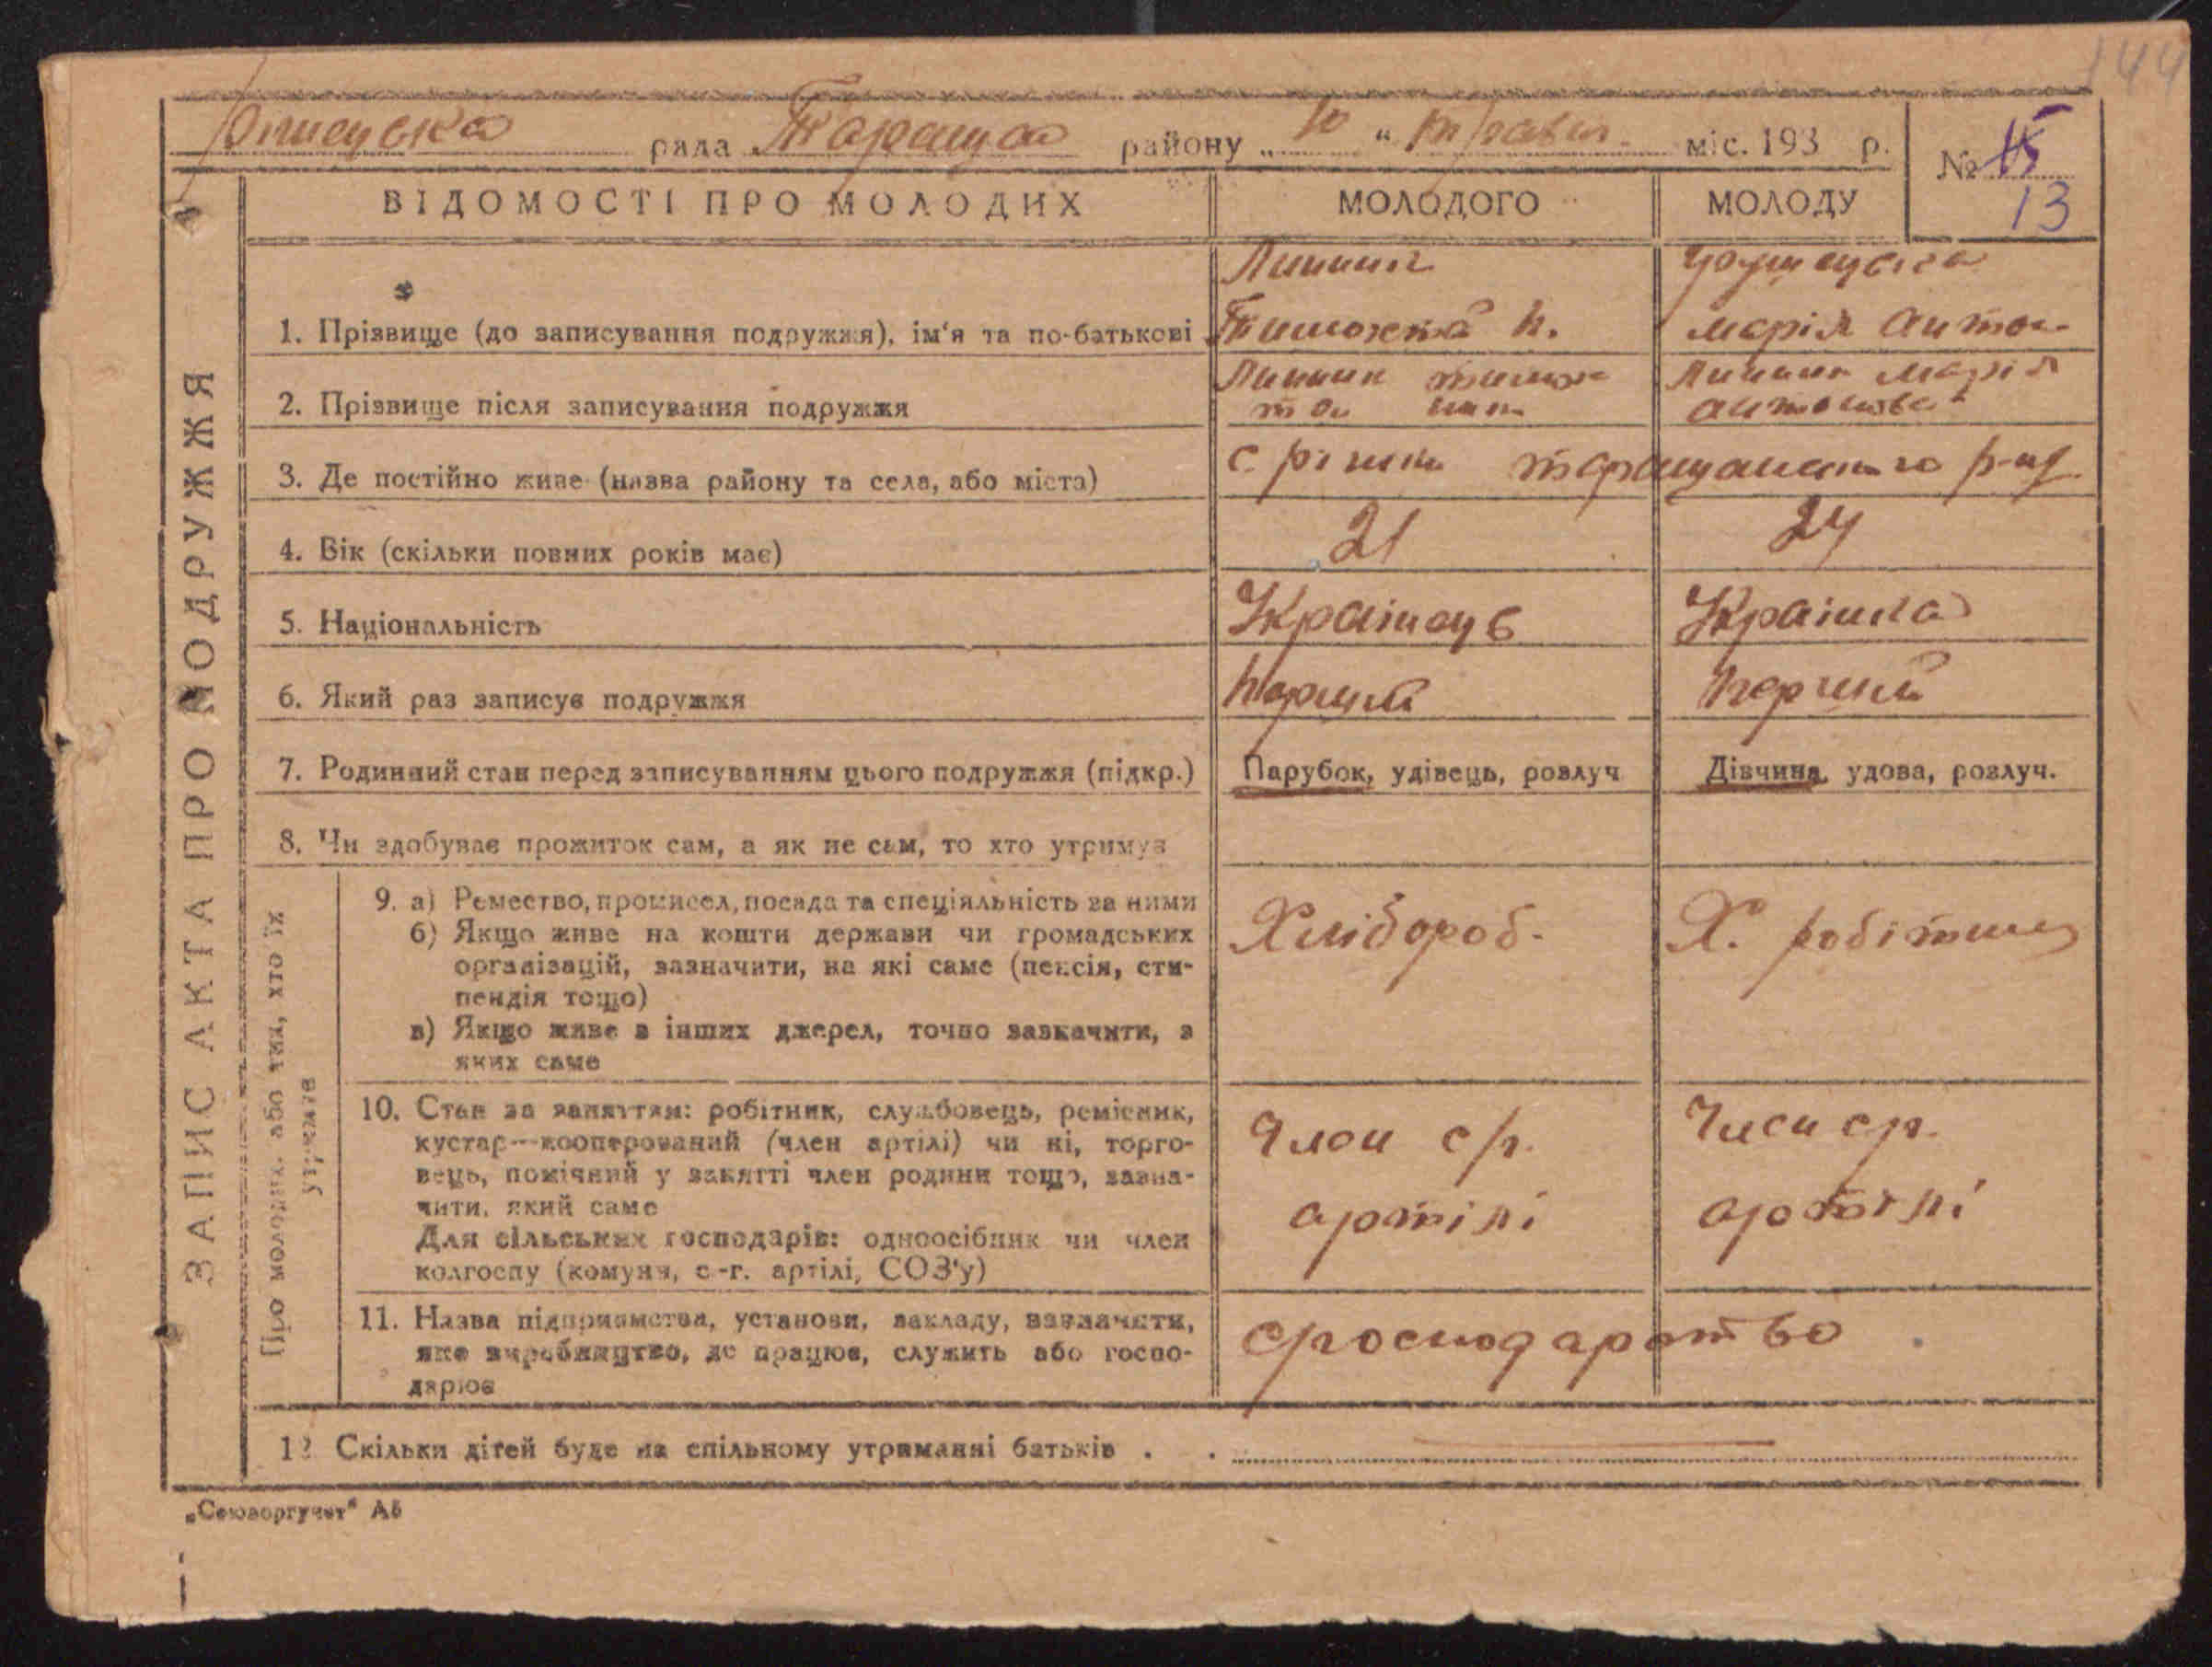 144
рада Тараща району „ 10 “ травня міс. 193 р.
№ 15
13
ВІДОМОСТІ ПРО МОЛОДИХ
МОЛОДОГО
МОЛОДУ
ЗАПИС АКТА ПРО ПОДРУЖЖЯ
1. Прізвище (до записування подружжя), ім'я та по-батькові
марія Антон
2. Прізвище після записування подружжя
марія
антонова
3. Де постійно живе (назва району та села, або міста)
с
4. Вік (скільки повних років має)
21
24
5. Національність
Українець
Українка
6. Який раз записує подружжя
Перший
Перший
7. Родинний стан перед записуванням цього подружжя (підкр.)
Парубок, удівець, розлуч
Дівчина, удова, розлуч.
8. Чи здобуває прожиток сам, а як не сам, то хто утримує
Про молодих, або тих, хто їх
утримує
9. а) Ремество, промисел, посада та спеціяльність за ними
б) Якщо живе на кошти держави чи громадських
організацій, зазначити, на які саме (пенсія, сти-
пендія тощо)
в) Якщо живе з інших джерел, точно зазначити, з
яких саме
Хлібороб.
Х. робітниц
10. Стан за заняттям: робітник, службовець, ремісник,
кустар—кооперований (член артілі) чи ні, торго-
вець, помічний у занятті член родини тощо, зазна-
чити, який саме
Для сільських господарів: одноосібник чи член
колгоспу (комуни, с.-г. артілі, СОЗ'у)
Член с/г.
артілі
Член с/г.
артілі
11. Назва підприємства, установи, закладу, зазначити,
яке виробництво, де працює, служить або госпо-
дарює
с/господарство
12 Скільки дітей буде на спільному утриманні батьків . .
„Союзоргучет“ А5